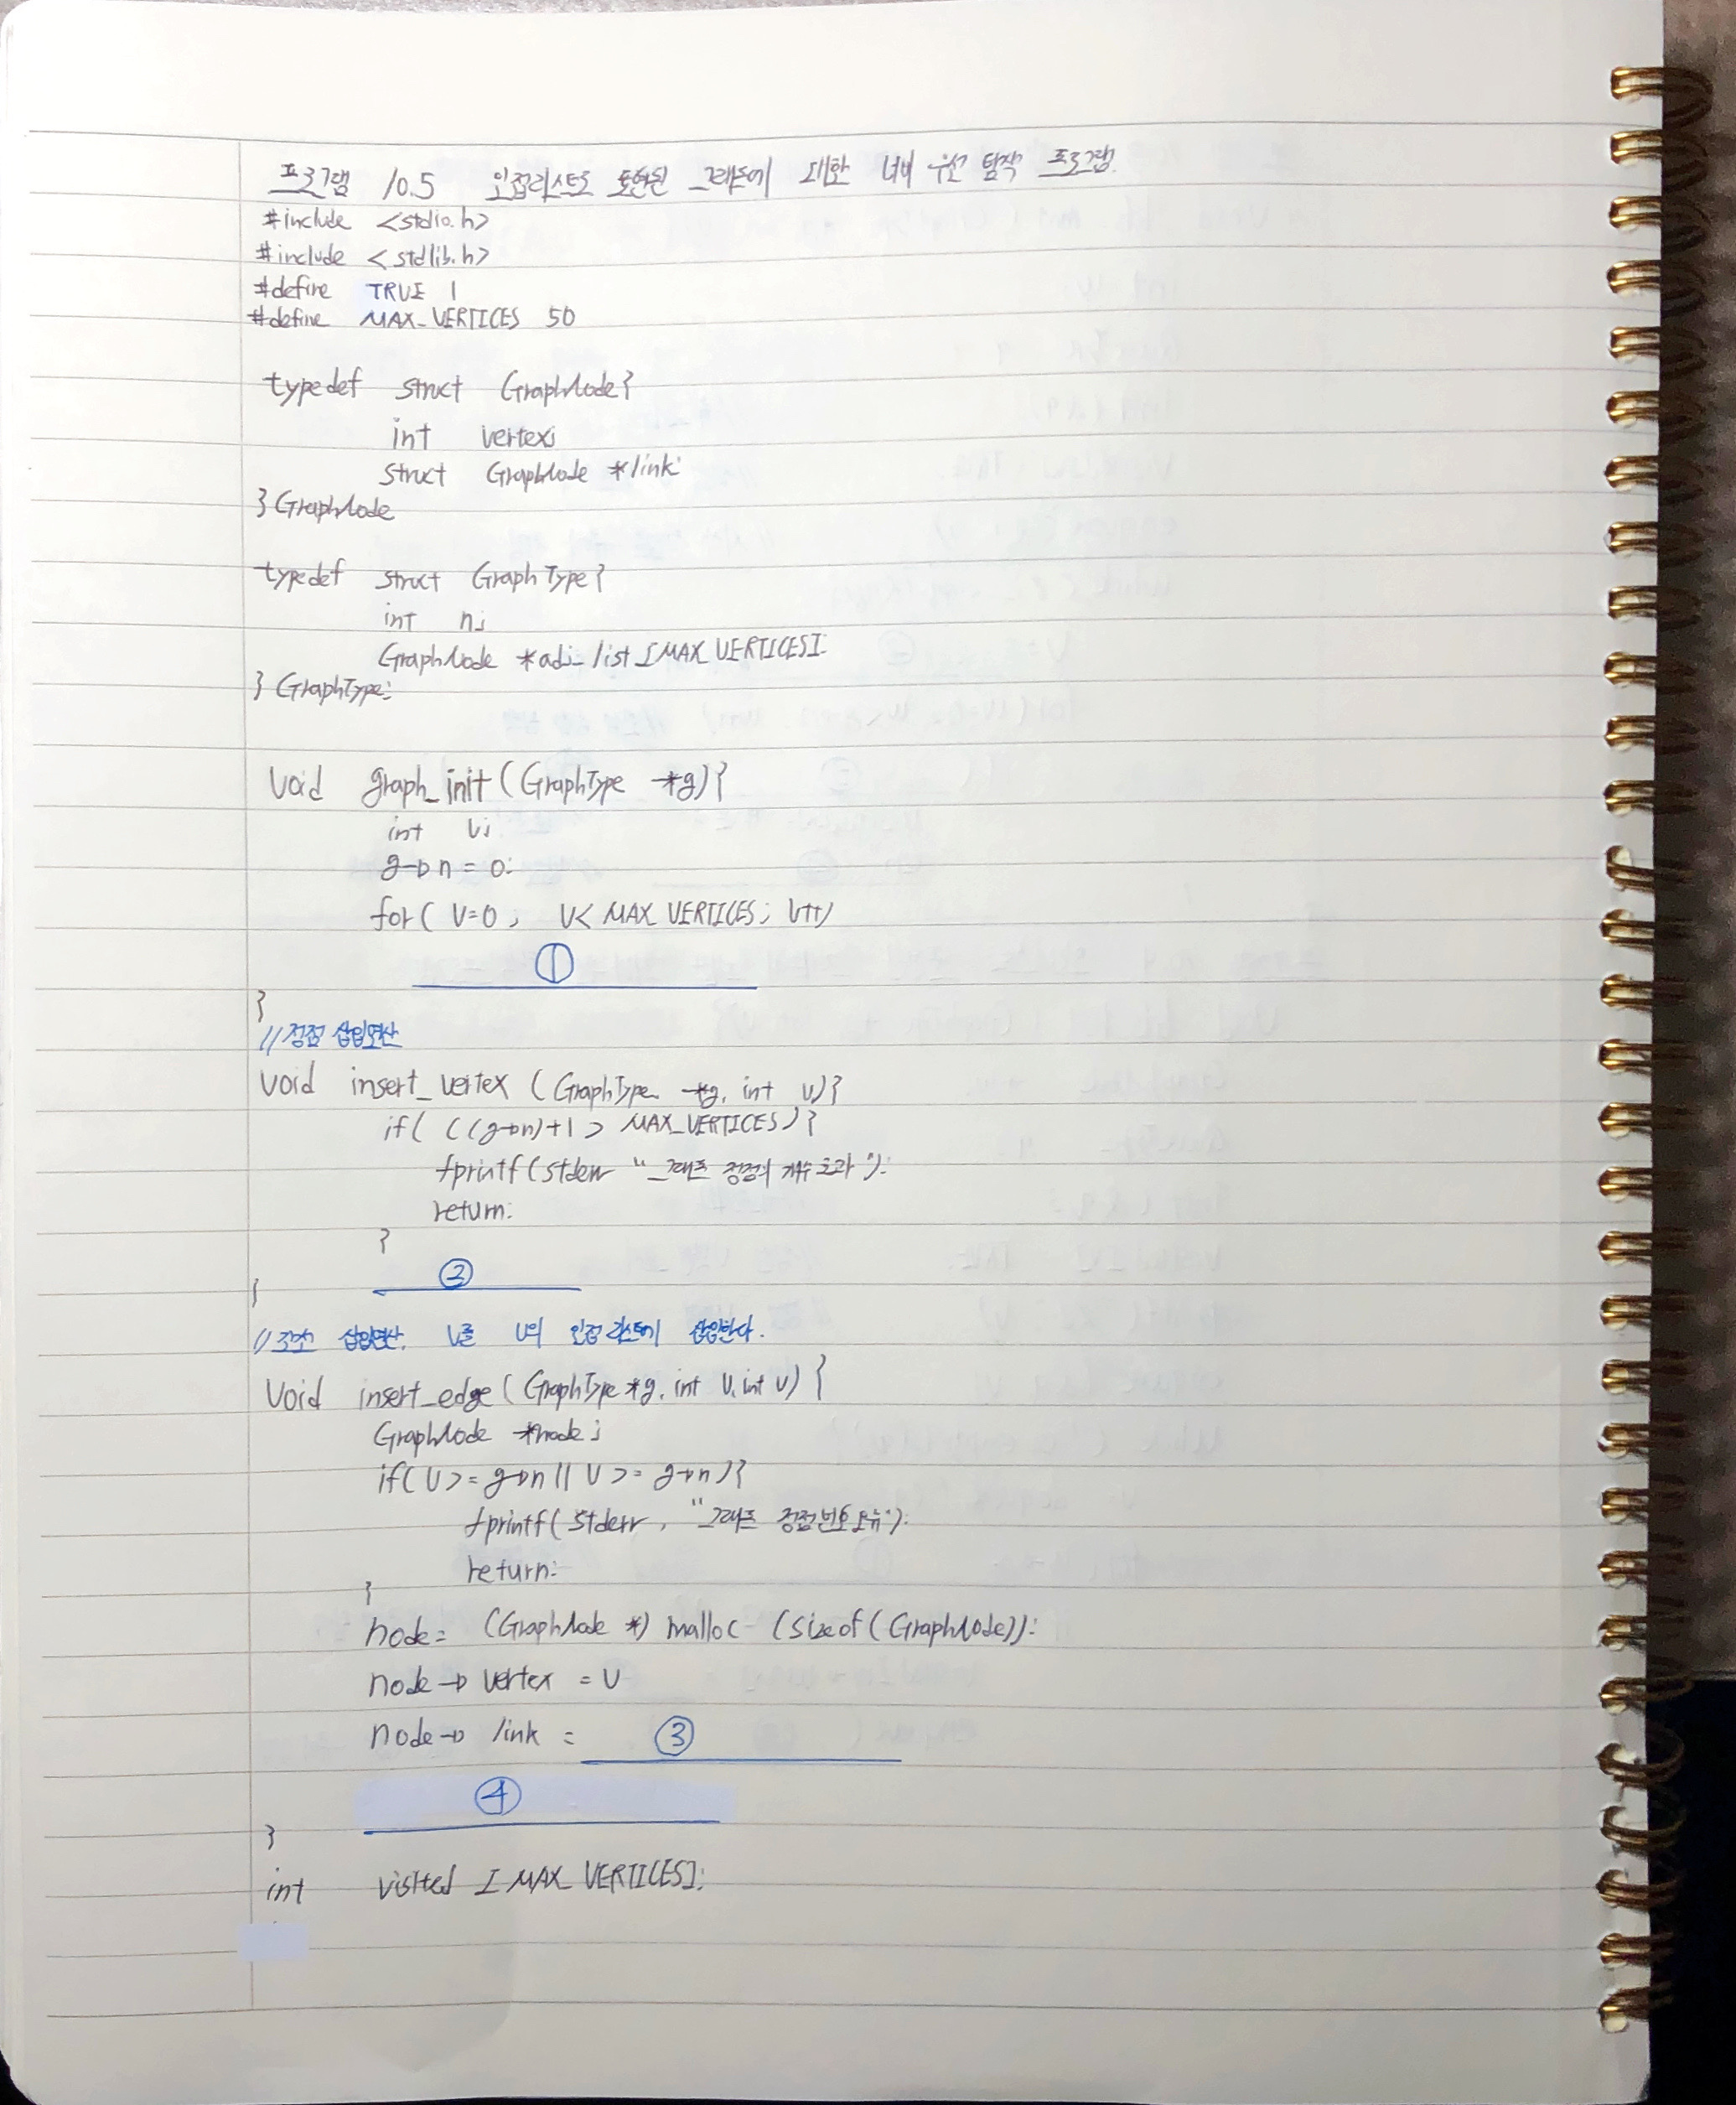 프로그램 10.5 인접리스트로 표현된 그래프에 대한 너비 우선 탐색 프로그램
#include <stdio.h>
#include <stdlib.h>
#define TRUE 1
#define MAX_VERTICES 50
typedef struct GraphNode{
int vertex;
struct GraphNode *link;
} GraphNode
typedef struct GraphType{
int n;
GraphNode *adj_list[MAX_VERTICES];
} GraphType;
void graph_init(GraphType *g){
int v;
g->n = 0;
for( v=0; v< MAX_VERTICES; v++)
①
}
//정점 삽입연산
void insert_vertex (GraphType *g, int v){
if( ((g->n)+1 > MAX_VERTICES){
fprintf(stderr "그래프 정점의 개수 초과");
return;
}
②
}
//간선 삽입연산, v를 u의 인접 리스트에 삽입한다.
void insert_edge(GraphType *g, int u, int v) {
GraphNode *node;
if( u >= g->n || v >= g->n){
fprintf(stderr, "그래프 정점번호오류");
return;
}
node= (GraphNode *) malloc (sizeof(GraphNode));
node-> vertex = v
node-> link = ③
④
}
int visited [MAX_VERTICES];